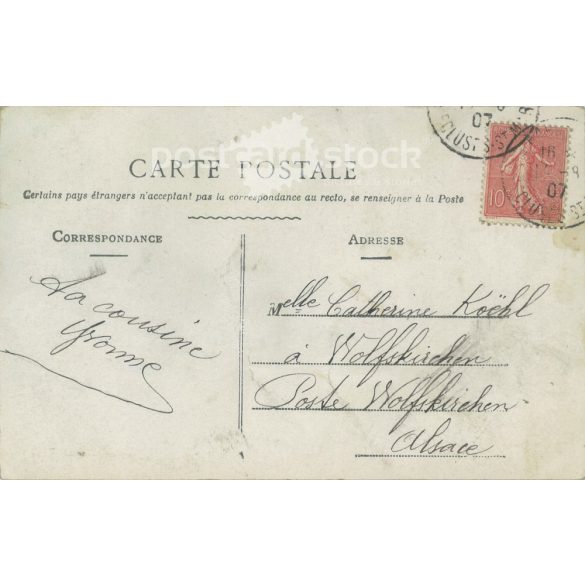 postcardstock
CARTE POSTALE
Certains pays étrangers n'acceptant pas la correspondance au recto, se renseigner à la Poste
CORRESPONDANCE
ADRESSE
Ta cousine
Yvonne
Melle Catherine Koëhl
à Wolfskirchen
Poste Wolfskirchen
Alsace
10
07
07